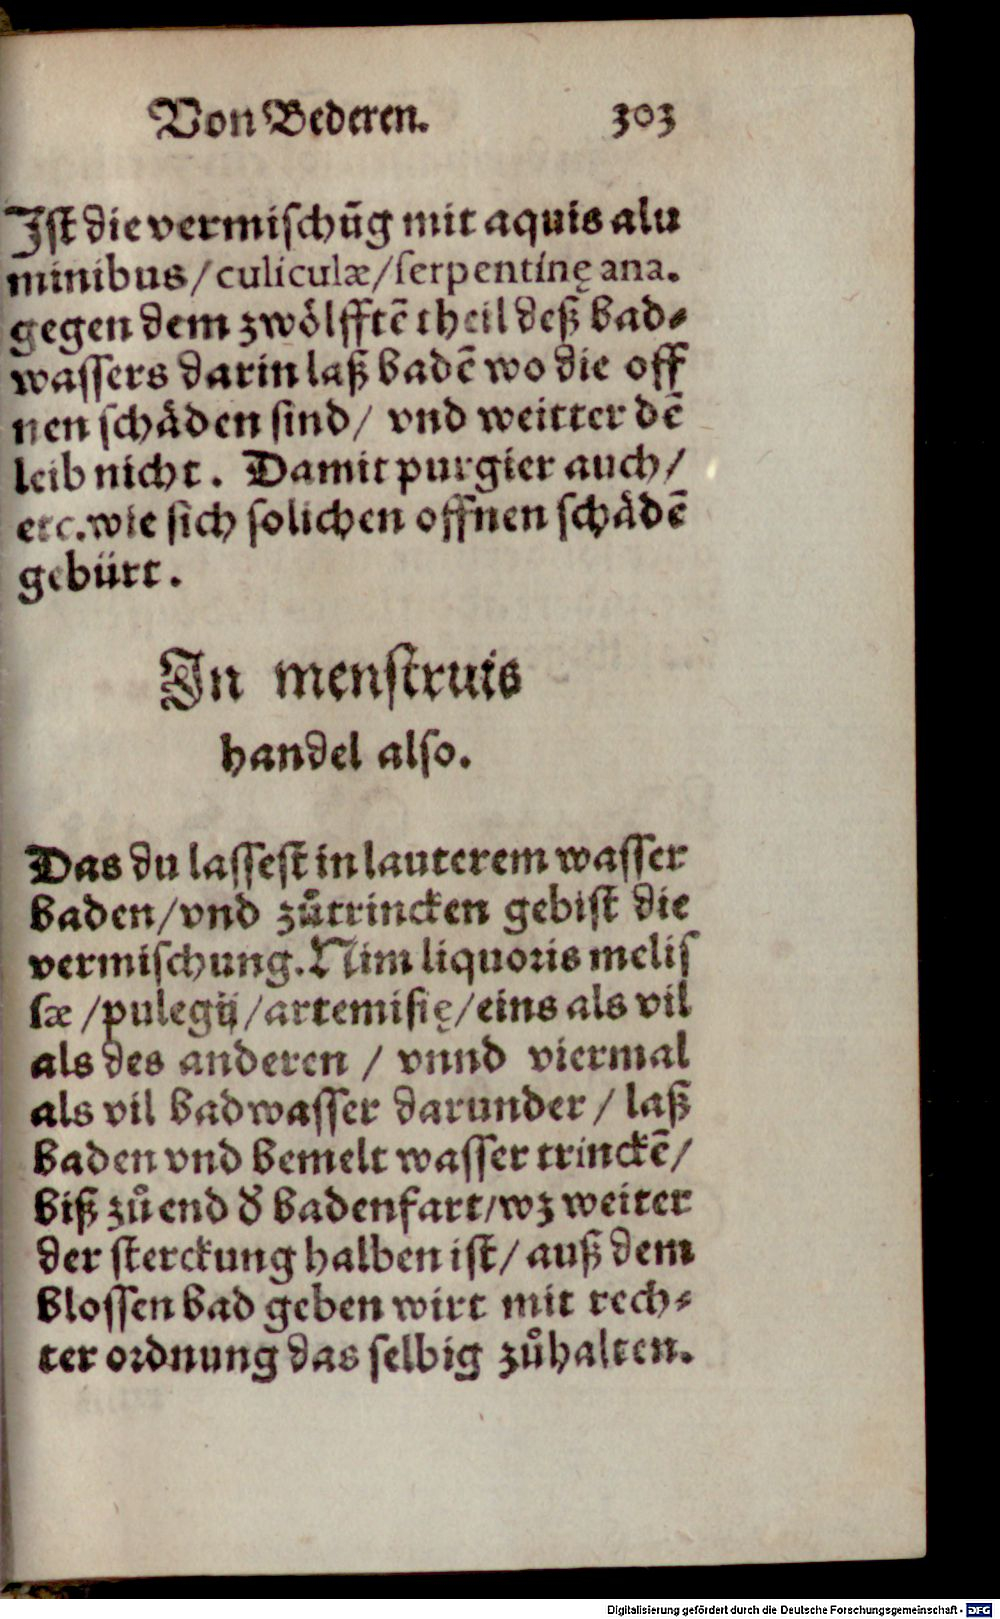 Von Bederen. 303
Ist die vermischūg mit aquis alu
minibus / culiculæ / serpentinę ana.
gegen dem zwölfftē theil deß bad⸗
wassers darin laß badē wo die off
nen schäden sind / vnd weitter dē
leib nicht. Damit purgier auch /
etc. wie sich solichen offnen schädē
gebürt.
In menstruis
handel also.
Das du lassest in lauterem wasser
baden / vnd zůtrincken gebist die
vermischung. Nim liquoris melis
sæ / pulegij / artemisię / eins als vil
als des anderen / vnnd viermal
als vil badwasser darunder / laß
baden vnd bemelt wasser trinckē /
biß zů end d̕ badenfart / wz weiter
der sterckung halben ist / auß dem
blossen bad geben wirt mit rech⸗
ter ordnung das selbig zůhalten.
Digitalisierung gefördert durch die Deutsche Forschungsgemeinschaft - DFG